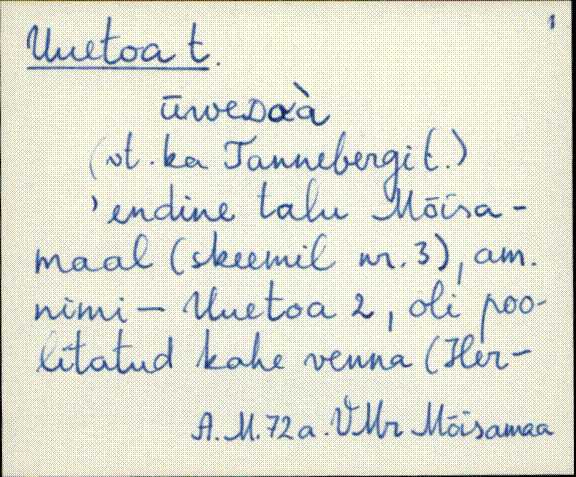 1
Uuetoa t.
ūvveᴅαὰ
(vt. ka Tannebergi t.)
'endine talu Mõisa-
maal (skeemil nr. 3), am.
nimi – Uuetoa 2, oli poo-
litatud kahe venna (Her-
A. M. 72 a. VMr Mõisamaa